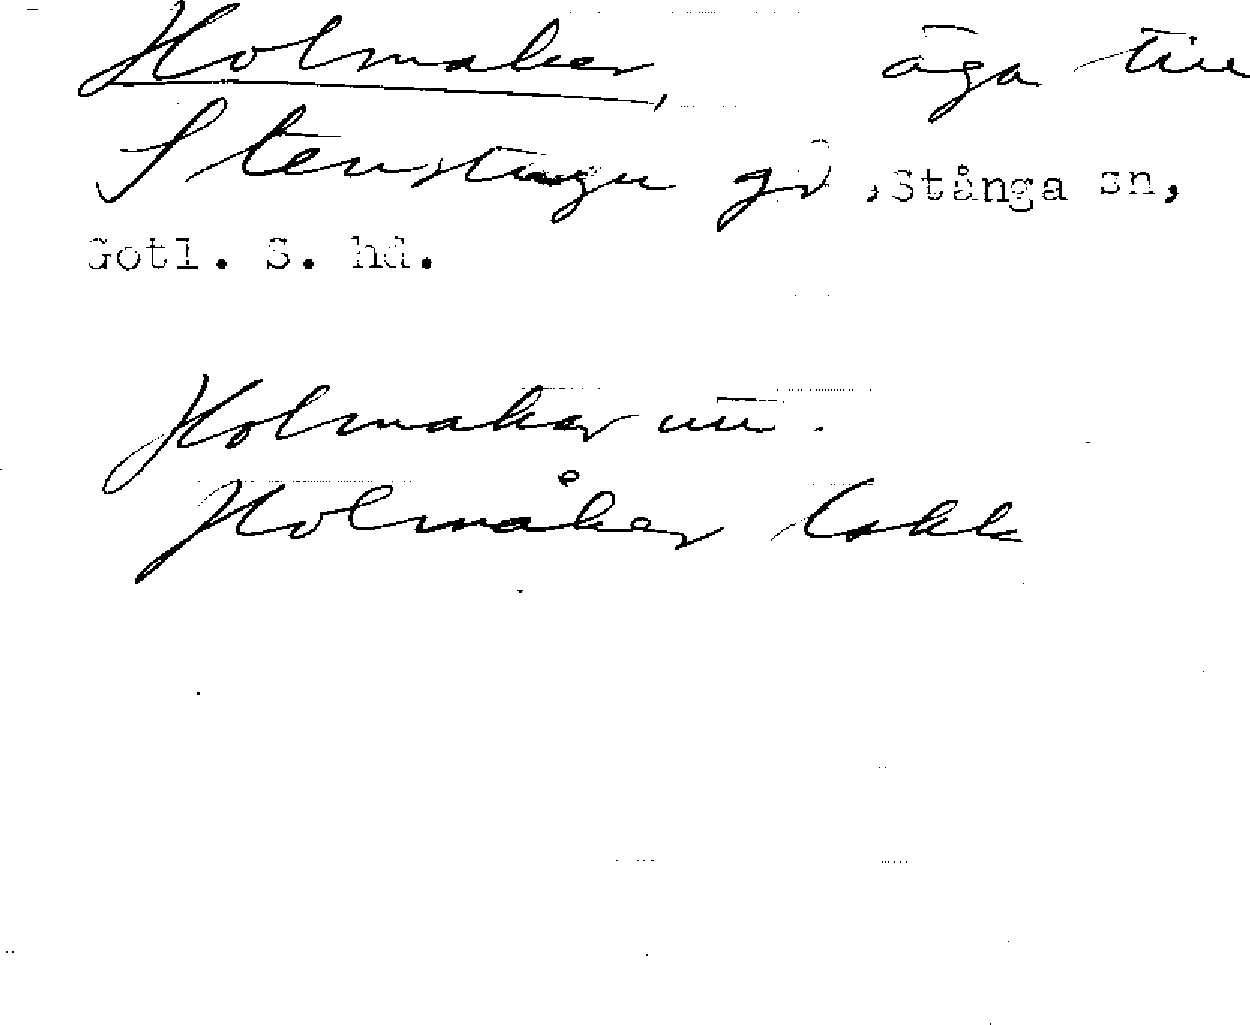 Holmaker, äga till
Stenstugu gd ,Stånga sn,
Gotl. S. hd.
Holmaker
Holmåker